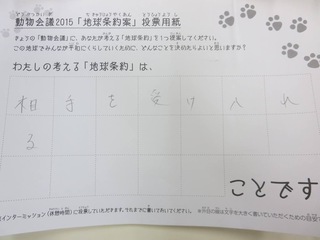 動物会議2015「地球条約案」投票用紙
きょうの「動物会議」に、あなたが考える「地球条約」を1つ提案してください。
この地球でみんなが平和にくらしていくために、どんなことを決めたらよいと思いますか?
わたしの考える「地球条約」は、
相手を受け入れ
る
ことです
(インターミッション(休憩時間)に投票していただきます。それまでに書いておいてください。